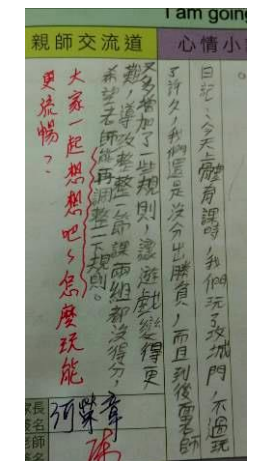 I am going
親師交流道
心情小
日記：今天體育課時，我們玩了攻城門，不過玩
了許久，我們還是沒分出勝負，而且到後面老師
又多增加了一些規則，讓遊戲變得更
難，導致整整一節課兩組都沒得分，
希望老師能再調整一下規則。
大家一起想想吧～怎麼玩能
更流暢？
家長
簽名
老師
簽名